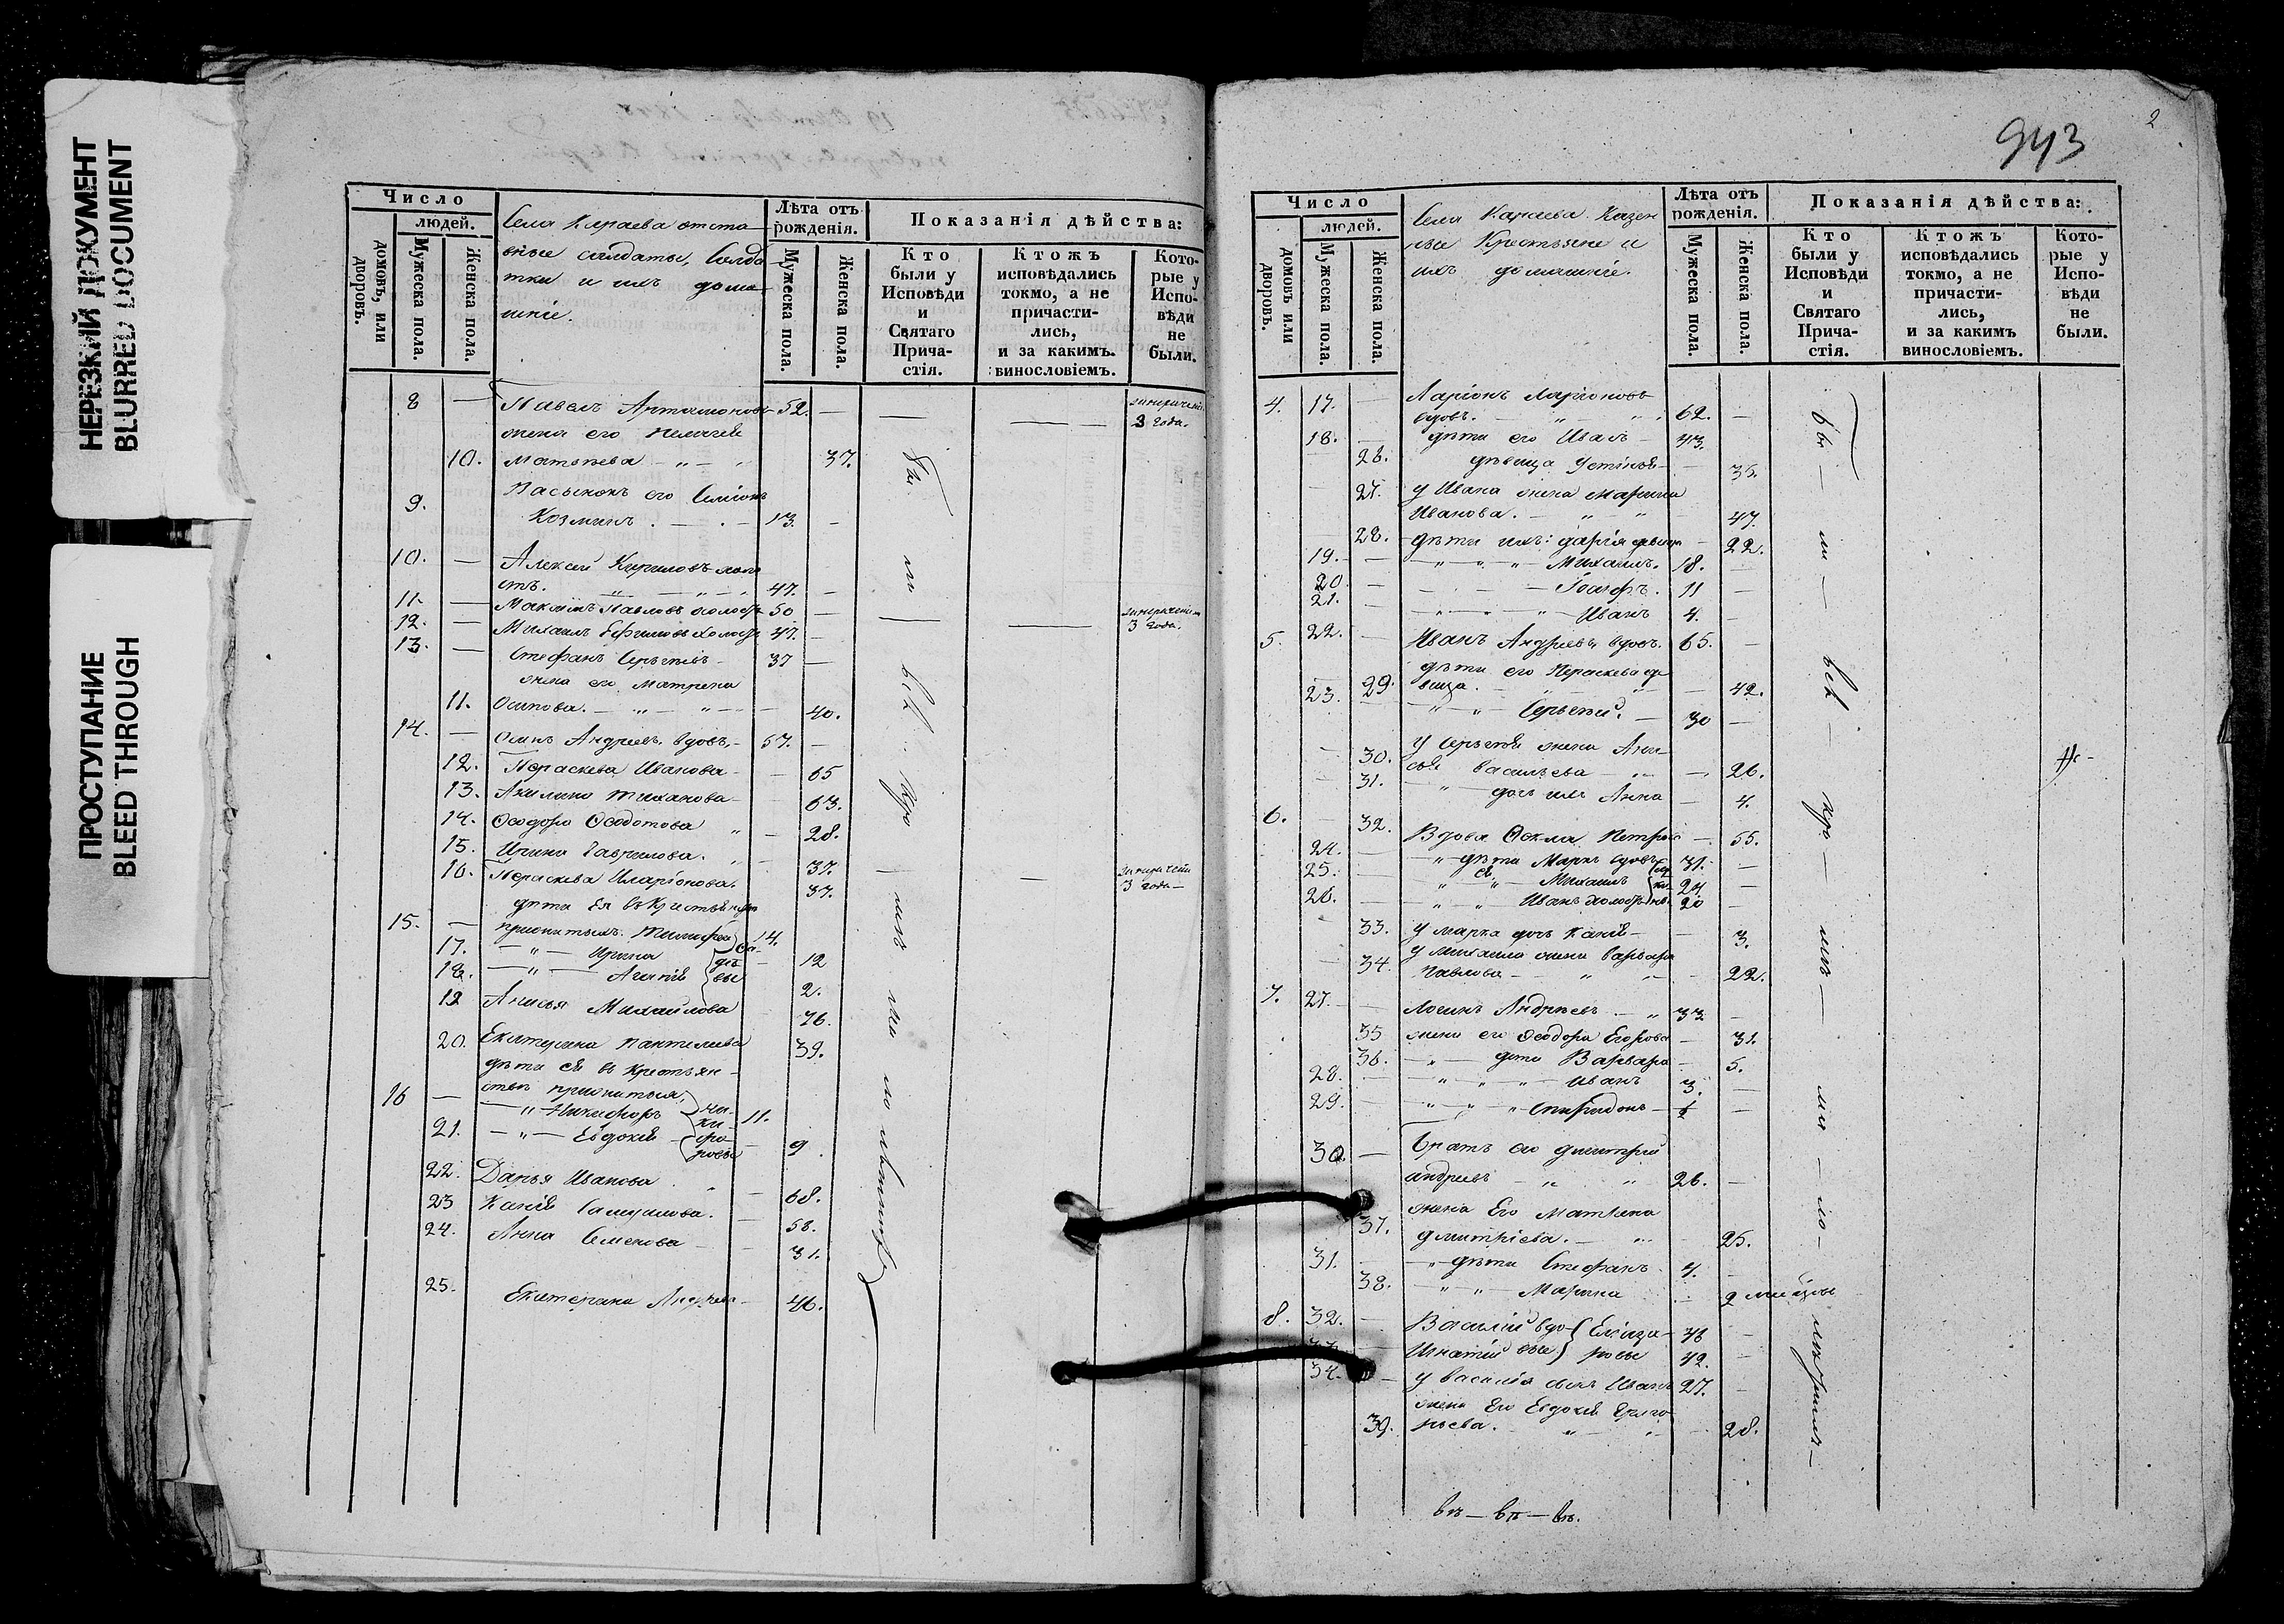 НЕРЕЗКИЙ ДОКУМЕНТ
BLURRED DOCUMENT
ПРОСТУПАНИЕ
BLEED THROUGH
Число
людей.
домовъ, или дворовъ.
Мужеска пола.
Женска пола.
Села Караева отста
вные солдаты, солда
тки и ихъ дома
шніе.
Лѣта отъ рожденія.
Мужеска пола.
Женска пола.
Показанія дѣйства:
Кто были у Исповѣди и Святаго Причастія.
Ктожъ исповѣдались токмо, а не причастились, и за какимъ винословіемъ.
Которые у Исповѣди не были.
8 — Павелъ Артамоновъ 52. —
3 года.
жена его Пелагея
10. Матвѣева 37.
Пасынокъ его Симіонъ
9. Козминъ 13. —
10. — Алексей Кириловъ холо
стъ. 47. —
11. — Максимъ Павловъ холостъ 50 —
3 года.
12. — Михаилъ Ефимовъ холостъ 47. —
13. — Стефанъ Сергѣевъ 37 —
жена его Матрена
11. Осипова. 40.
14. — Андреевъ, вдовъ, 57. —
12. Параскева Иванова — 65
13. Акилина Тиханова 63.
14. Ѳеодора Ѳеодотова 28.
15. Ирина Гаврилова. 37.
16. Параскева Иларіонова. 37.
3 года —
дѣти ея въ крестьянствѣ
15. — прижитыя. Тимофей 14.
17. — " — Ирина 12
18. — " — Агапія 2.
19 Анисья Михайлова 76.
20. Екатерина Пантелеева 39.
дѣти ея въ крестьян-
ствѣ прижитыя,
16 — " Никифоръ 11.
21. — " — Евдокія 9
22. Дарья Иванова 68.
23 Ксенія Самуилова. 58.
24. Анна Семенова 31.
25. Екатерина Андреева 46.
бы ли всѣ кро мѣ ли
943
2
Число
людей.
домовъ или дворовъ.
Мужеска пола.
Женска пола.
Села Караева Казен
ные Крестьяне и
ихъ домашніе.
Лѣта отъ рожденія.
Мужеска пола.
Женска пола.
Показанія дѣйства:
Кто были у Исповѣди и Святаго Причастія.
Ктожъ исповѣдались токмо, а не причастились, и за какимъ винословіемъ.
Которые у Исповѣди не были.
4. 17. — Ларіонъ Ларіоновъ
вдовъ. 62. —
18. — дѣти его Иванъ — 43.
26. дѣвица Устинья — 35.
27. у Ивана жена Марина
Иванова. 47.
28. дѣти ихъ: Дарія дѣвица — 22.
19. — Михаилъ. 18. —
20. — Іосифъ. 11 —
21. — Иванъ 4. —
5. 22. — Иванъ Андреевъ вдовъ. 65. —
дѣти его Параскева дѣ
29. вица. — 42.
23. Сергѣй. — 30 —
у Сергѣя жена Ани
30. сья Васильева — 26.
31. дочь ихъ Анна — 4.
6. 32. Вдова Ѳекла Петрова — 55.
24. — дѣти Маркъ вдовъ 31. —
25. — ея Михаилъ 24 —
26. — Иванъ холостъ 20 —
33. у Марка дочь Ксенія — 3.
у Михаила жена Варвара
34. Павлова — 22.
7. 27. — Логинъ Андреевъ 33 —
35 жена его Ѳеодора Егорова — 31.
36. дѣти Варвара — 5.
28. — Иванъ 3. —
29. — Спиридонъ —
30. — Братъ его Дмитрій
Андреевъ 26. —
жена Его Матрена
37. Дмитріева. — 25.
31. дѣти Стефанъ 4. —
38. Марина 2 мѣсяцы
8. 32. — Василій вдо- Елиза- 48 —
33. Игнатій вые ровы 42. —
34. — у Василія сынъ Иванъ 27. —
жена Его Евдокія Григо
39. рьева. — 28.
бы — ли — всѣ — кро — мѣ —